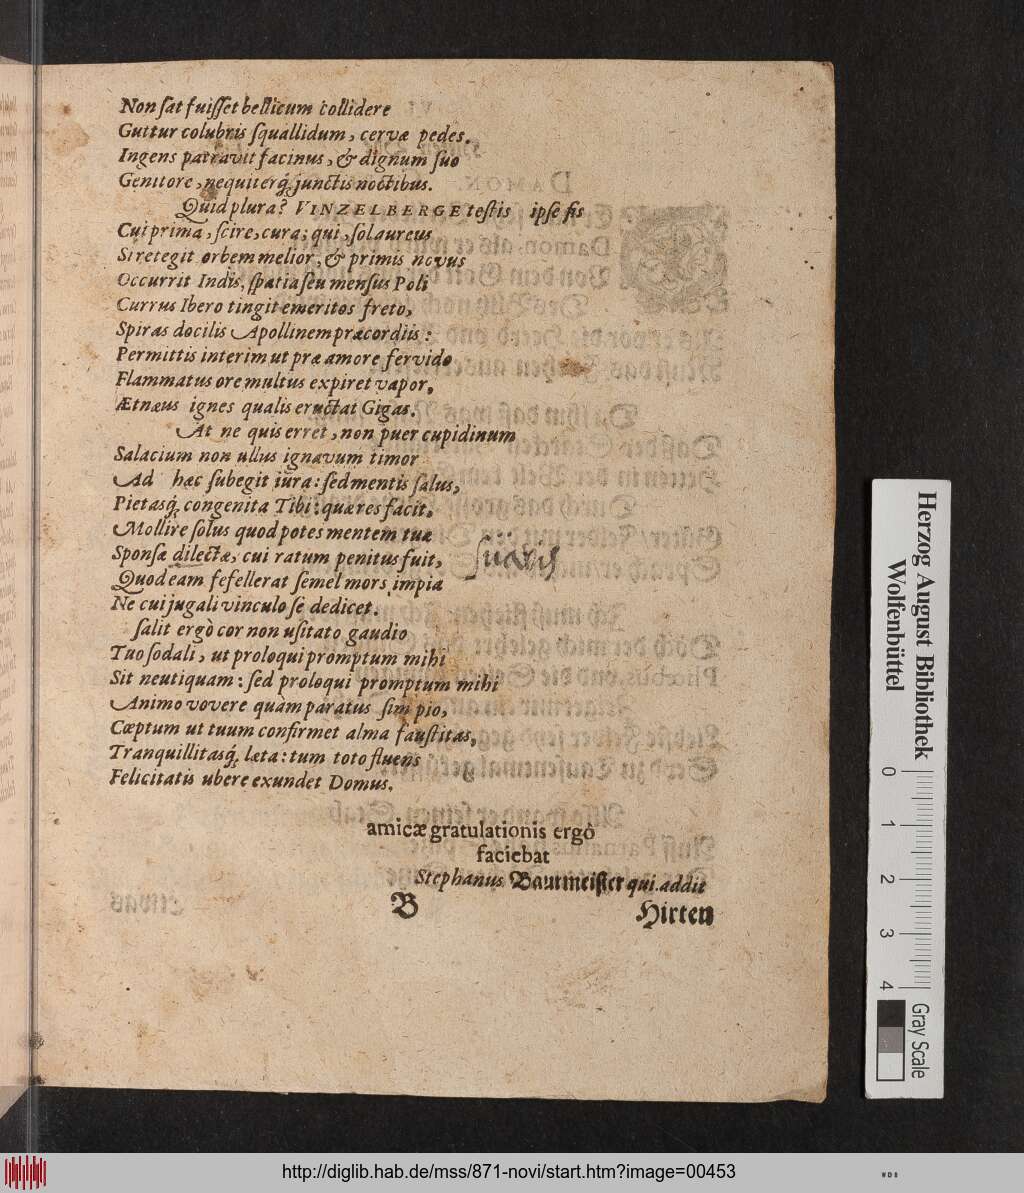 Non ſat fuiſſet bellicum collidere
Guttur colubris ſquallidum, cervæ pedes.
Ingens patravit facinus, & dignum ſuo
Genitore, nequiterq́; junctis noctibus.
Quid plura? VINZELBERGE teſtis ipſe ſis
Cui prima, ſcire, cura; qui, ſol aureus
Si retegit orbem melior, & primis novus
Occurrit Indis, ſpatia ſeu menſus Poli
Currus Ibero tingit emeritos freto,
Spiras docilis Apollinem præcordiis:
Permittis interim ut præ amore fervido
Flammatus ore multus expiret vapor,
Ætnæus ignes qualis eructat Gigas.
At ne quis erret, non puer cupidinum
Salacium non ullus ignavum timor
Ad hæc ſubegit iura: ſed mentis ſalus,
Pietasq́; congenita Tibi: quæ res facit,
Mollire ſolus quod potes mentem tuæ
Sponſæ dilectæ, cui ratum penitus fuit,
ſuavis
Quod eam fefellerat ſemel mors impia
Ne cui jugali vinculo ſe dedicet.
ſalit ergò cor non uſitato gaudio
Tuo ſodali, ut proloqui promptum mihi
Sit neutiquam: ſed proloqui promptum mihi
Animo vovere quàm paratus ſim pio,
Cœptum ut tuum confirmet alma fauſtitas,
Tranquillitasq́; læta: tum toto fluens
Felicitatis ubere exundet Domus.
amicæ gratulationis ergò
faciebat
Stephanus Baurmeiſter qui addit
B Hirten
Herzog August Bibliothek
Wolfenbüttel
0 1 2 3 4
Gray Scale
http://diglib.hab.de/mss/871-novi/start.htm?image=00453
WDB